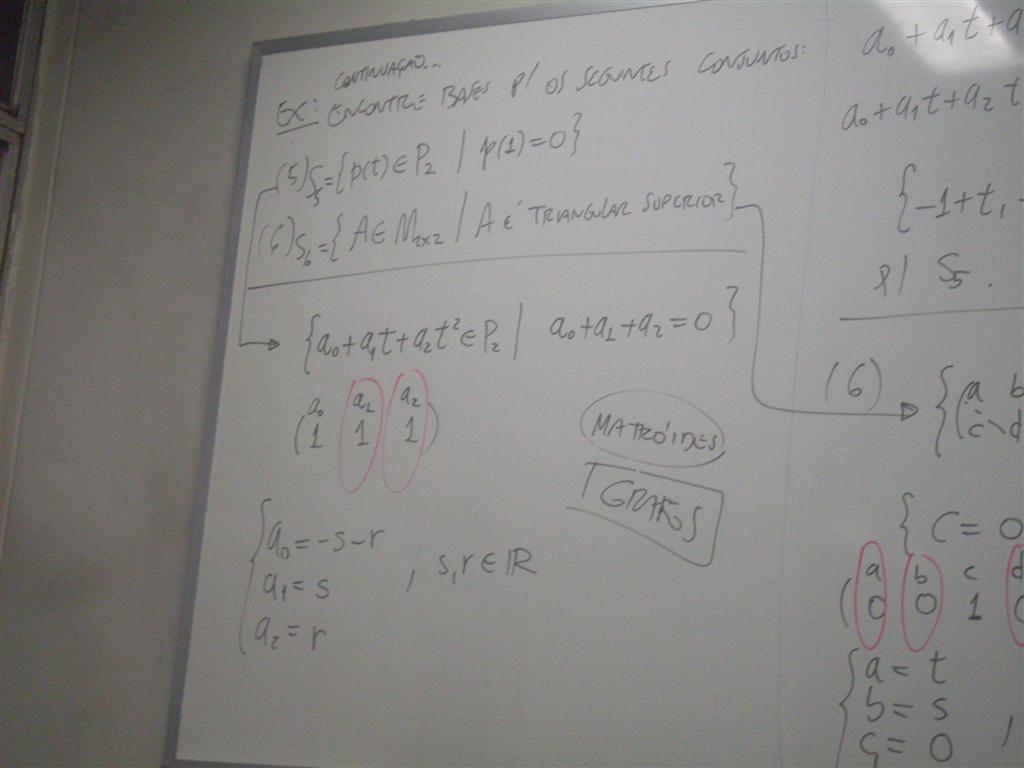 CONTINUAÇÃO...
EX: ENCONTRE BASES P/ OS SEGUINTES CONJUNTOS:
(5) S₅={p(t)∈P₂ / p(1)=0}
(6) S₆={A∈M₂ₓ₂ / A é TRIANGULAR SUPERIOR}
{a₀+a₁t+a₂t²∈P₂ | a₀+a₁+a₂=0}
a₀ a₁ a₂
(1 1 1)
{a₀=-s-r
a₁=s , s,r∈ℝ
a₂=r
MATRÓIDES
GRAFOS
a₀+a₁t+a
a₀+a₁t+a₂t
{-1+t,-
p/ S₅.
(6) {(a b
c d
{C=0
a b c d
(0 0 1 0
{a=t
b=s
c=0 ,